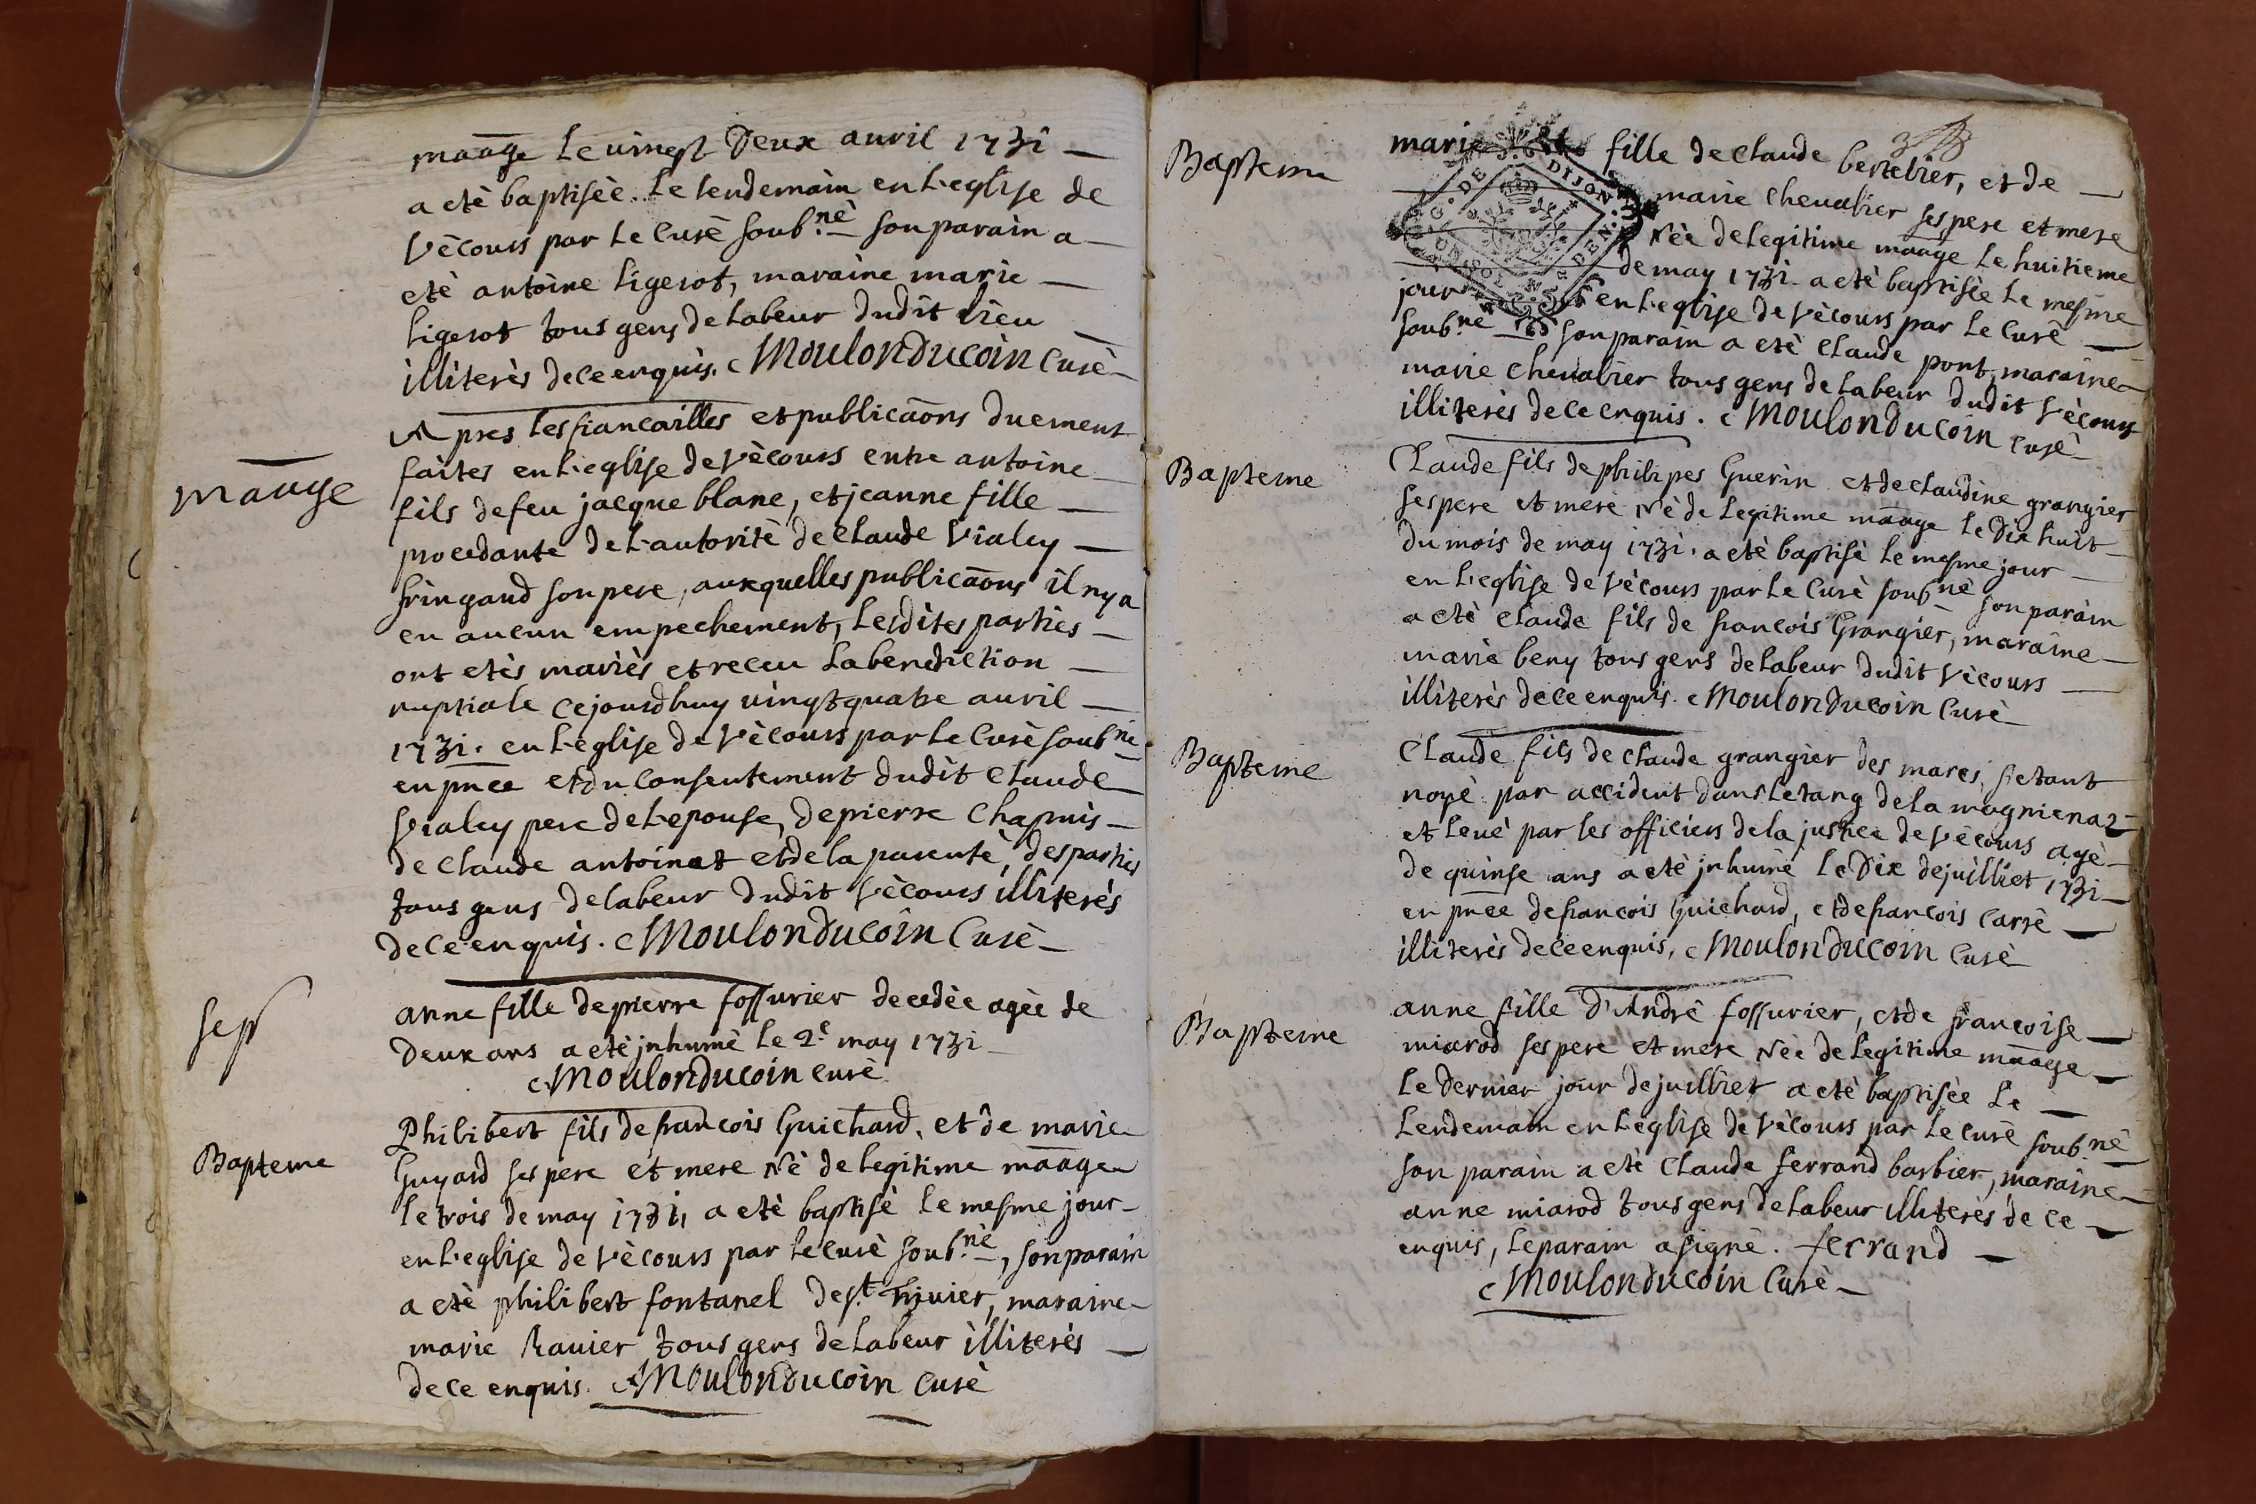 maâge le vingt deux avril 1731
a etè baptisèe le lendemain en l'eglise de
vècours par le curè soub.nè son parain a
etè antoine ligerot, maraine marie
ligerot tous gens de labeur dudit lieu
illiterès de ce enquis. Moulonducoin Curè
maâge
Apres les fiancailles et publicaõns duement
faites en l'eglise de vècours entre antoine
fils de feu jacque blanc, et jeanne fille
procedante de l'autoritè de claude vialey
fringand son pere, auxquelles publicaõns il ny a
eu aucun empechement, lesdites parties
ont etès mariès et receu la benediction
nuptiale cejourdhuy vingt quatre avril
1731. en l'eglise de vècours par le curè soub.nè
en pñce et du consentement dudit claude
vialey pere de l'epouse, de pierre Chapuis
de claude antoinat et de la parentè, des parties
tous gens de labeur dudit vècours illiterès
de ce enquis. Moulonducoin Curè
sep
anne fille de pierre fossurier decedèe agèe de
deux ans a etè jnhumè le 2e may 1731
Moulonducoin curè
Bapteme
Philibert fils de francois Guichard, et de marie
Guyard ses pere et mere Nè de legitime maâge
le trois de may 1731, a etè baptisè le mesme jour
en l'eglise de vècours par le curè soub.nè, son parain
a etè philibert fontanel de st. trivier, maraine
marie Ravier tous gens de labeur illiterès
de ce enquis. Moulonducoin curè
Baptem
marie fille de claude bertelier, et de
marie chevalier ses pere et mere
Nèe de legitime maâge le huitieme
de may 1731. a etè baptisèe le mesme
jour en l'eglise de vècours par le curè
soub.nè son parain a etè claude pont, maraine
marie chevalier tous gens de labeur dudit vècours
illiterès de ce enquis. Moulonducoin curè
Bapteme
Claude fils de philipes Guerin et de claudine grangier
ses pere et mere Nè de legitime maâge le dix huit
du mois de may 1731. a etè baptisè le mesme jour
en l'eglise de vècours par le curè soub.nè son parain
a etè claude fils de francois Grangier, maraine
marie beny tous gens de labeur dudit vècours
illiterès de ce enquis. Moulonducoin Curè
Bapteme
Claude fils de claude grangier des mares, setant
noyè par accident dans letang de la magnienaz
et levè par les officiers de la justice de vècours agè
de quinse ans a etè jnhumè le dix de juilliet 1731
en pñce de francois Guichard, et de francois Carrè
illiterès de ce enquis, Moulonducoin Curè
Bapteme
anne fille d'Andrè fossurier, et de francoise
miarod ses pere et mere Nèe de legitime maâge
le dernier jour de juilliet a etè baptisèe le
lendemain en l'eglise de vècours par le curè soub.nè
son parain a etè claude ferrand barbier, maraine
anne miarod tous gens de labeur illiterès de ce
enquis, le parain a signè. ferrand
Moulonducoin Curè